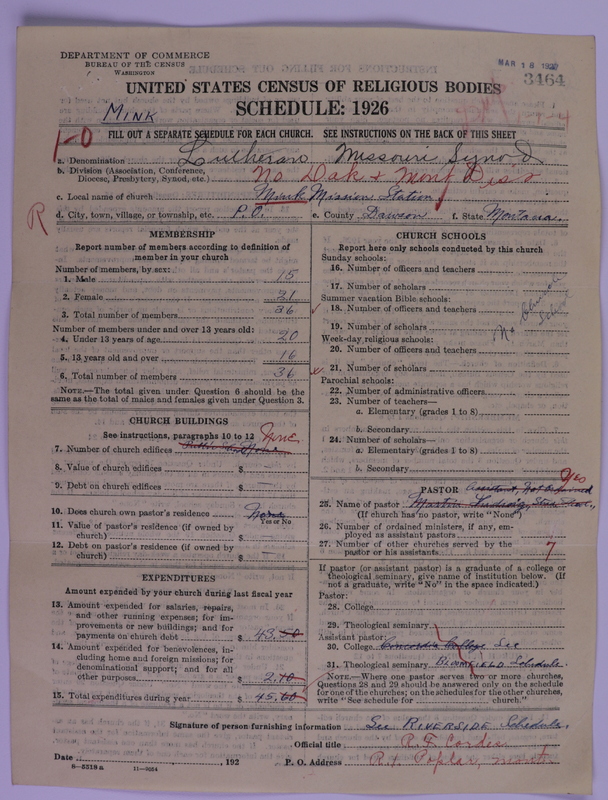 DEPARTMENT OF COMMERCE
BUREAU OF THE CENSUS
WASHINGTON
MAR 18 1927
3464
UNITED STATES CENSUS OF RELIGIOUS BODIES
SCHEDULE: 1926
MINK
1-0
FILL OUT A SEPARATE SCHEDULE FOR EACH CHURCH. SEE INSTRUCTIONS ON THE BACK OF THIS SHEET
a. Denomination Lutheran Missouri Synod
b. Division (Association, Conference, Diocese, Presbytery, Synod, etc.) No Dak & Mont Dis
c. Local name of church Mink Mission Station
R
d. City, town, village, or township, etc. P.O. e. County Dawson f. State Montana.
MEMBERSHIP
Report number of members according to definition of member in your church
Number of members, by sex:
1. Male 15
2. Female 21
3. Total number of members 36
Number of members under and over 13 years old:
4. Under 13 years of age 20
5. 13 years old and over 16
6. Total number of members 36
NOTE.—The total given under Question 6 should be
same as the total of males and females given under Question 3.
CHURCH BUILDINGS
See instructions, paragraphs 10 to 12
None
7. Number of church edifices
8. Value of church edifices $ —
9. Debt on church edifices $ —
10. Does church own pastor's residence None
Yes or No
11. Value of pastor's residence (if owned by
church) $
12. Debt on pastor's residence (if owned by
church) $
EXPENDITURES
Amount expended by your church during last fiscal year
13. Amount expended for salaries, repairs,
and other running expenses; for im-
provements or new buildings; and for
payments on church debt $ 43.50
14. Amount expended for benevolences, in-
cluding home and foreign missions; for
denominational support; and for all
other purposes $ 2.10
15. Total expenditures during year $ 45.60
CHURCH SCHOOLS
Report here only schools conducted by this church
Sunday schools:
16. Number of officers and teachers
17. Number of scholars
Summer vacation Bible schools:
18. Number of officers and teachers
19. Number of scholars
Week-day religious schools:
20. Number of officers and teachers
21. Number of scholars
Parochial schools:
22. Number of administrative officers
23. Number of teachers—
a. Elementary (grades 1 to 8)
b. Secondary
24. Number of scholars—
a. Elementary (grades 1 to 8)
b. Secondary
No Church School
Yes
PASTOR Assistant, Not Ordained
25. Name of pastor Martin
(If church has no pastor, write "None")
26. Number of ordained ministers, if any, em-
ployed as assistant pastors
27. Number of other churches served by the
pastor or his assistants 7
If pastor (or assistant pastor) is a graduate of a college or
theological seminary, give name of institution below. (If
not a graduate, write "No" in the space indicated.)
Pastor:
28. College
29. Theological seminary
Assistant pastor:
30. College Concordia College See
31. Theological seminary Bloomfield Schedule.
NOTE.—Where one pastor serves two or more churches,
Questions 28 and 29 should be answered only on the schedule
for one of the churches; on the schedules for the other churches,
write "See schedule for church."
Signature of person furnishing information See RIVERSIDE Schedule.
Official title R. F. Cordes
Date , 192 P. O. Address R.1 Poplar, Mont
8—5518a 11—9064